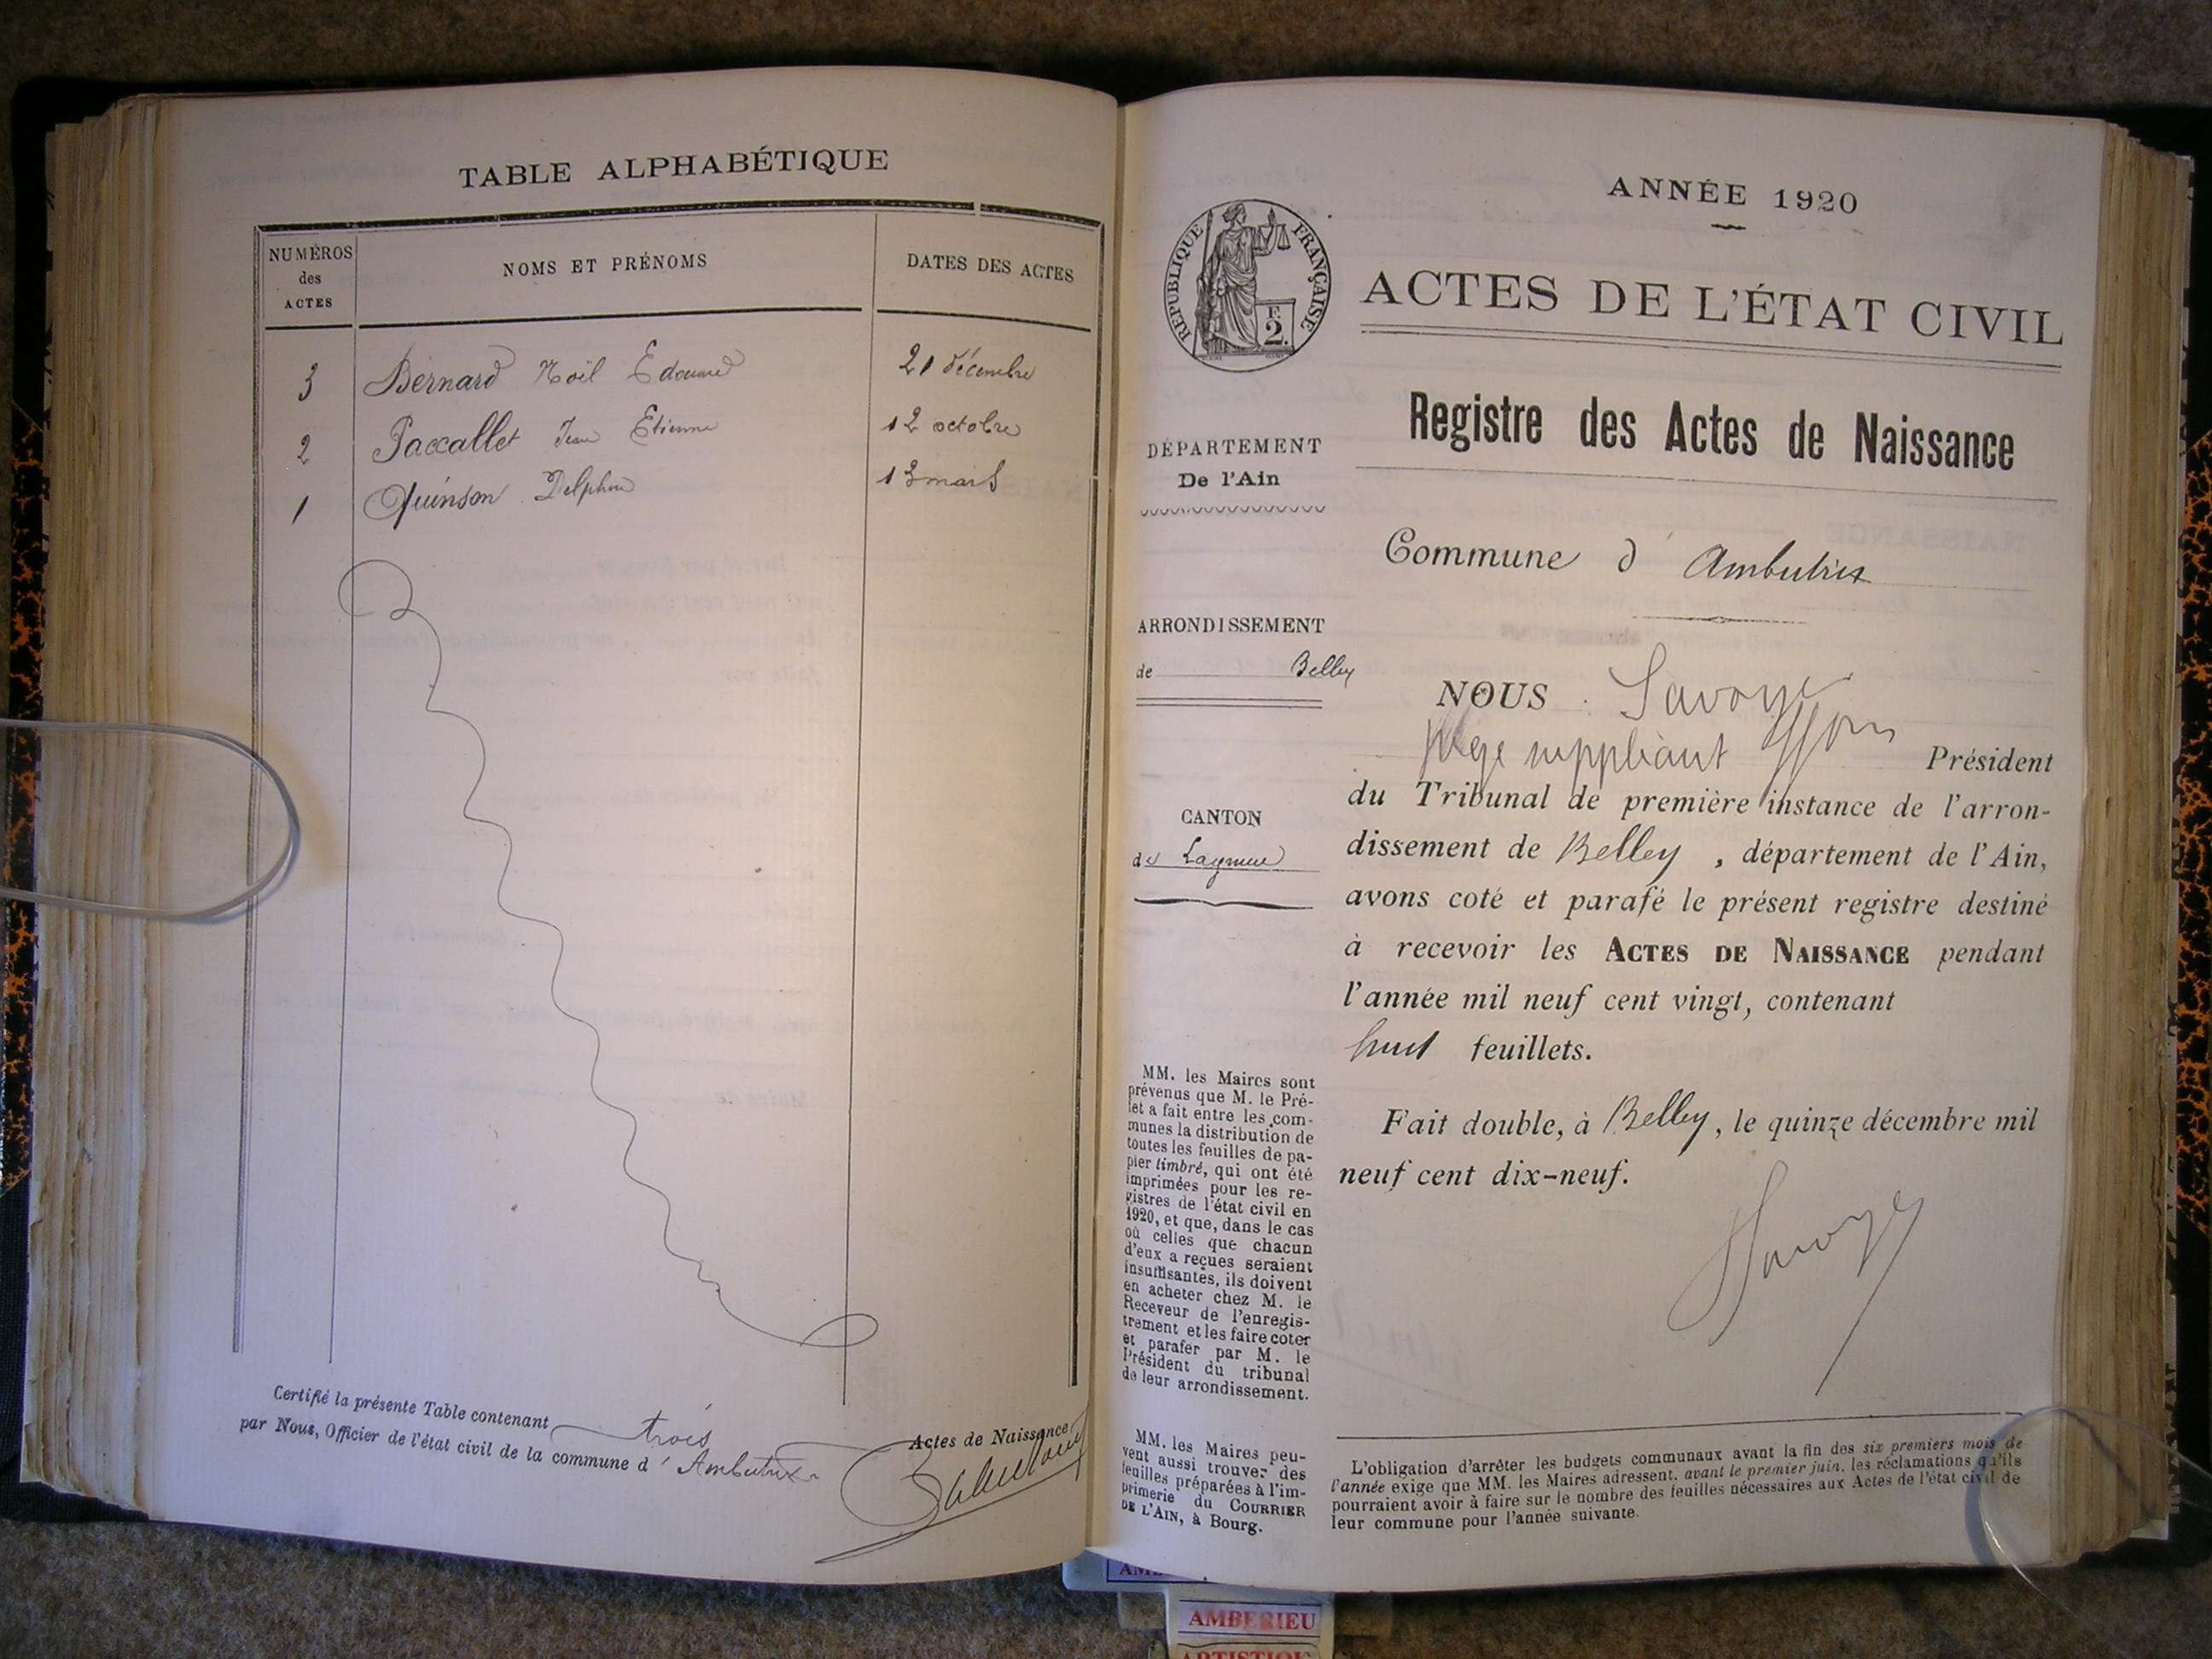 TABLE ALPHABÉTIQUE
NUMÉROS
des
ACTES
NOMS ET PRÉNOMS
DATES DES ACTES
3 Bernard Noël Edouard 21 décembre
2 Paccallet Jean Etienne 12 octobre
1 Quinson Delphin 13 mars
Certifié la présente Table contenant trois Actes de Naissance
par Nous, Officier de l'état civil de la commune d' Ambutrix
ANNÉE 1920
RÉPUBLIQUE FRANÇAISE
F.
2.
ACTES DE L'ÉTAT CIVIL
Registre des Actes de Naissance
DÉPARTEMENT
De l'Ain
Commune d' Ambutrix
ARRONDISSEMENT
de Belley
CANTON
de Lagnieu
NOUS Savoye
juge suppléant Président
du Tribunal de première instance de l'arron-
dissement de Belley , département de l'Ain,
avons coté et parafé le présent registre destiné
à recevoir les ACTES DE NAISSANCE pendant
l'année mil neuf cent vingt, contenant
huit feuillets.
Fait double, à Belley, le quinze décembre mil
neuf cent dix-neuf.
Savoye
MM. les Maires sont
prévenus que M. le Pré-
fet a fait entre les com-
munes la distribution de
toutes les feuilles de pa-
pier timbré, qui ont été
imprimées pour les re-
gistres de l'état civil en
1920, et que, dans le cas
où celles que chacun
d'eux a reçues seraient
insuffisantes, ils doivent
en acheter chez M. le
Receveur de l'enregis-
trement et les faire coter
et parafer par M. le
Président du tribunal
de leur arrondissement.
MM. les Maires peu-
vent aussi trouver des
feuilles préparées à l'im-
primerie du COURRIER
DE L'AIN, à Bourg.
L'obligation d'arrêter les budgets communaux avant la fin des six premiers mois de
l'année exige que MM. les Maires adressent, avant le premier juin, les réclamations qu'ils
pourraient avoir à faire sur le nombre des feuilles nécessaires aux Actes de l'état civil de
leur commune pour l'année suivante.
AMBERIEU